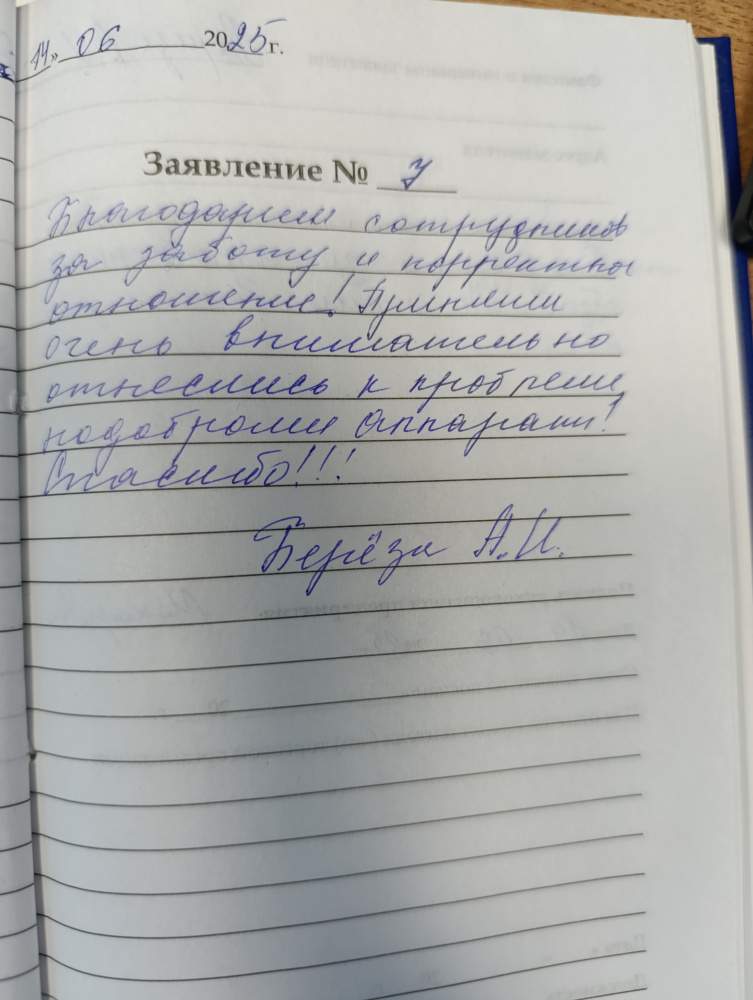 14» 06 2025г.
Заявление № 7
Благодарим сотрудников
за заботу и корректное
отношение! Приняли
очень внимательно
отнеслись к проблеме,
подобрали аппарат!
Спасибо!!!
Берёза А.И.